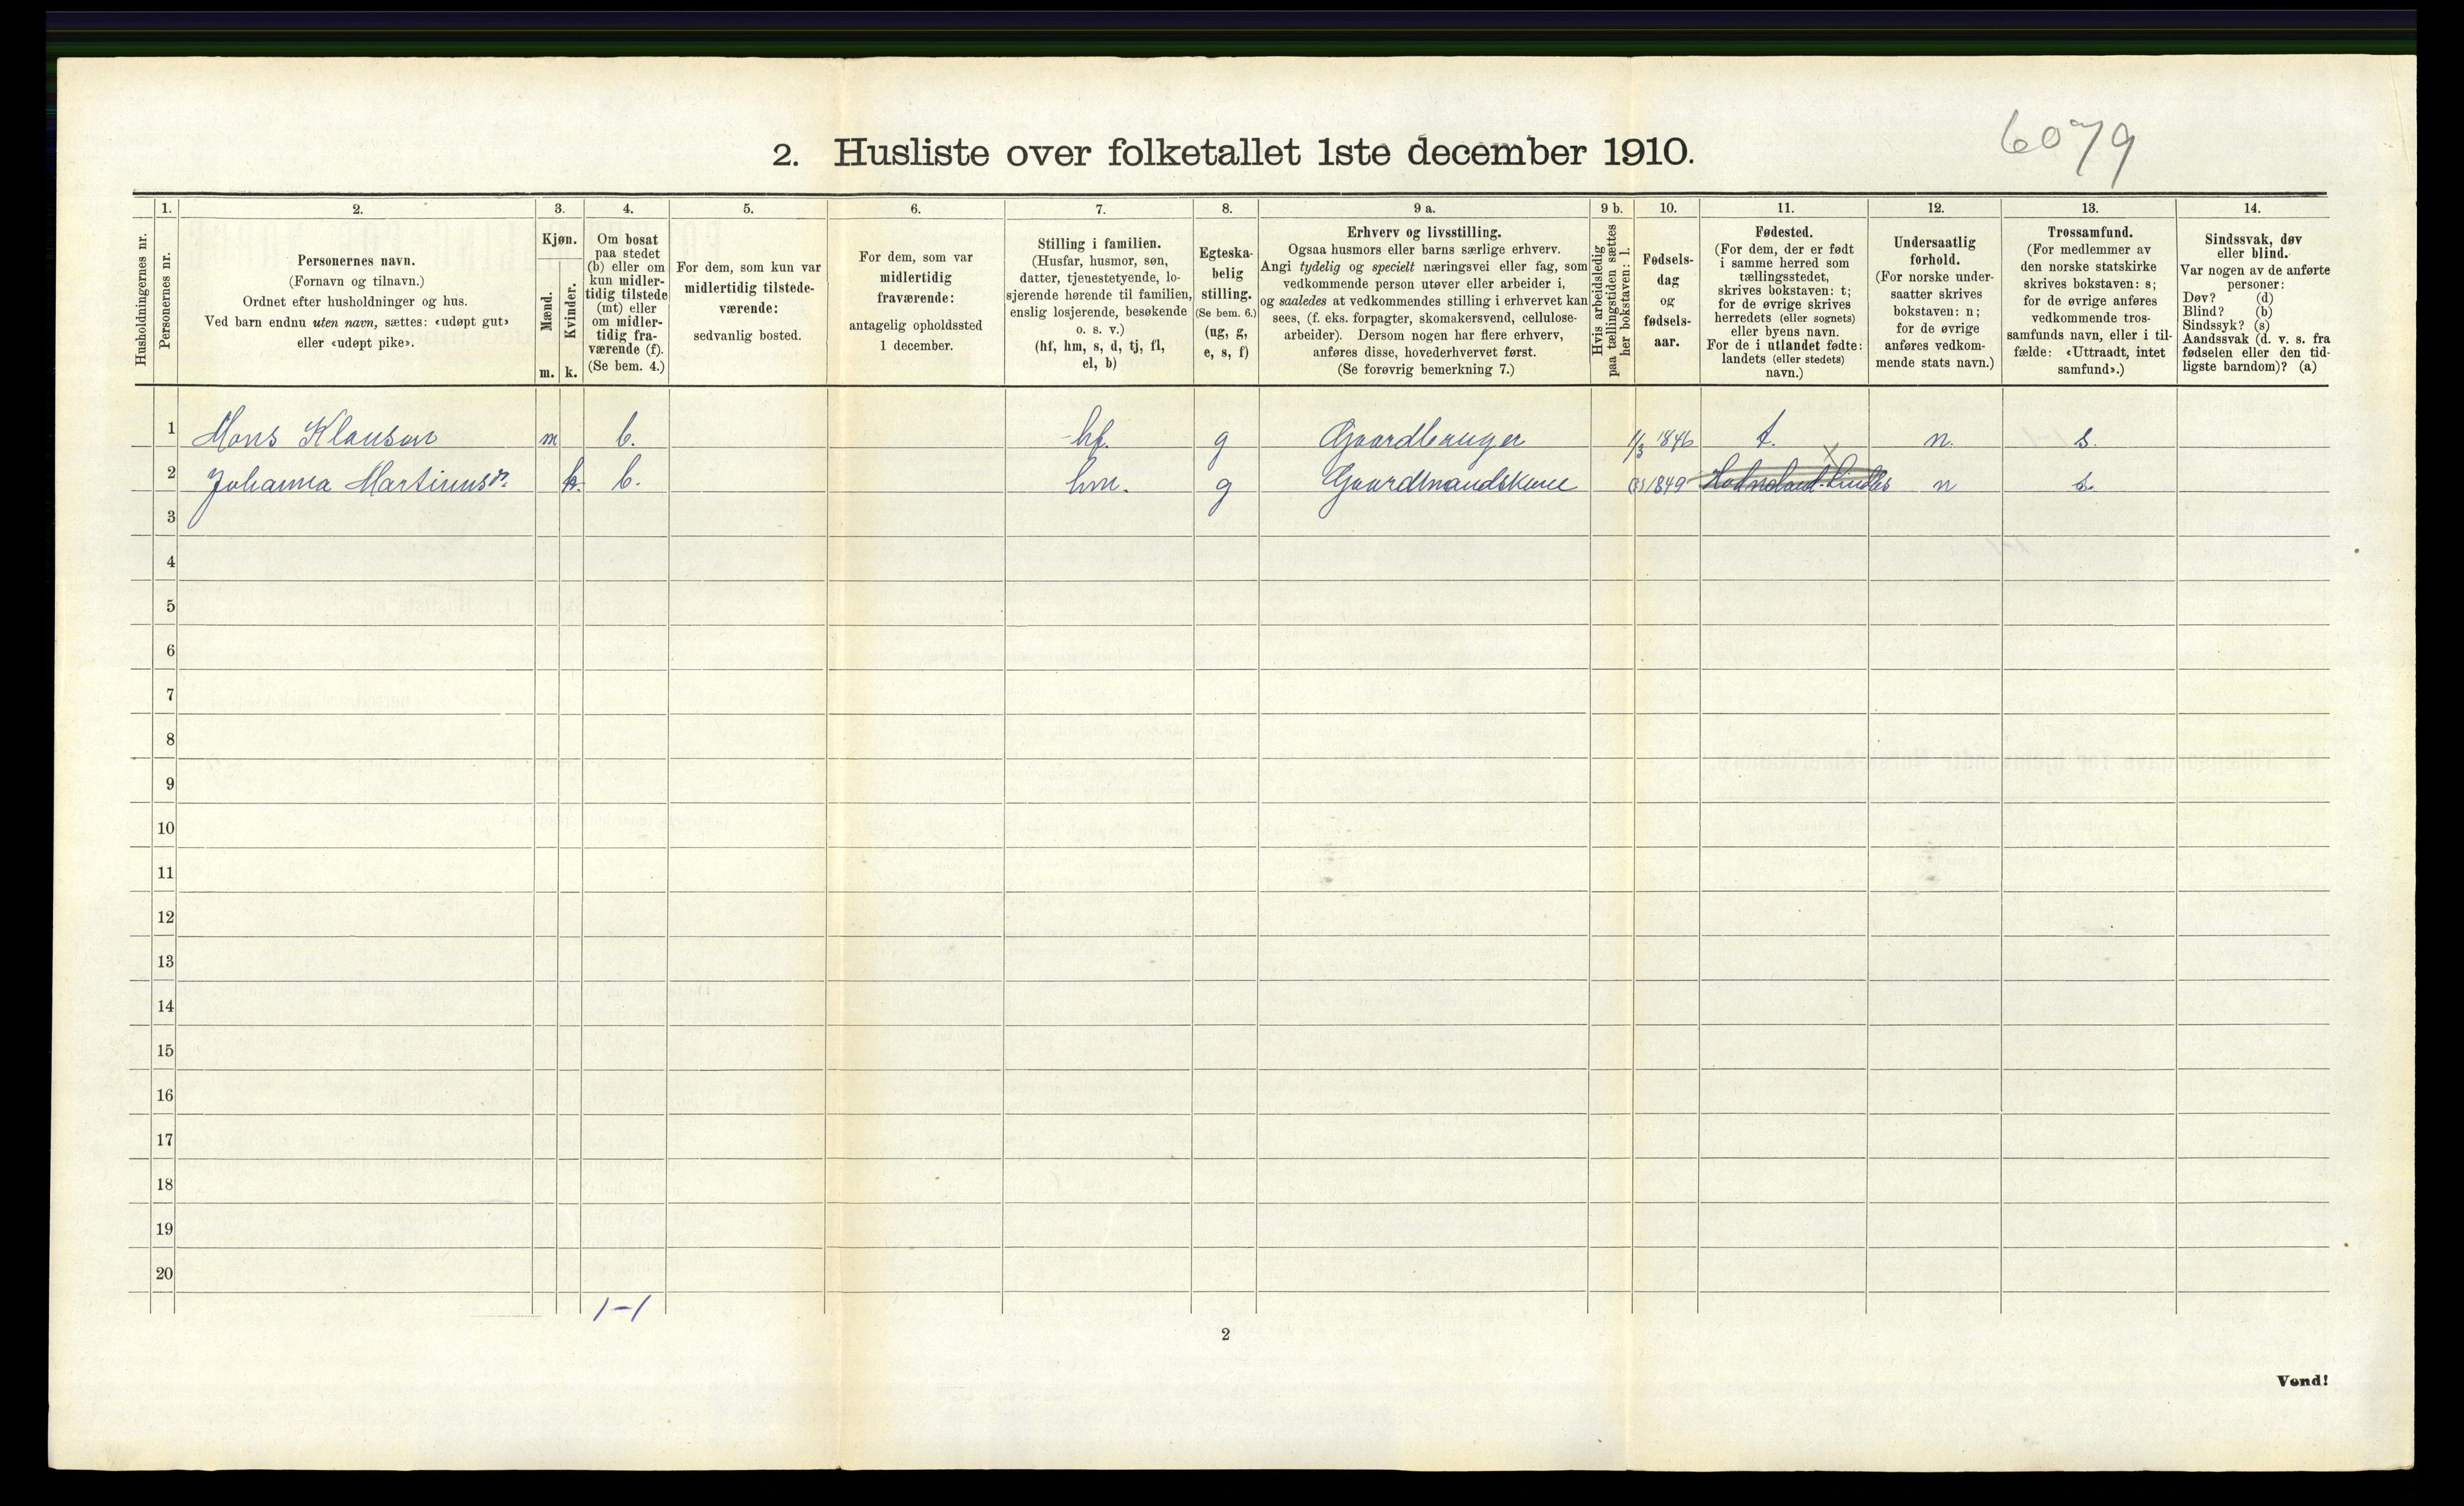 6079
2. Husliste over folketallet 1ste december 1910.
Husholdningernes nr.
1.
Personernes nr.
2.
Personernes navn.
(Fornavn og tilnavn.)
Ordnet efter husholdninger og hus.
Ved barn endnu uten navn, sættes: «udøpt gut»
eller «udøpt pike».
3.
Kjøn.
Mænd.
Kvinder.
m. k.
4.
Om bosat
paa stedet
(b) eller om
kun midler-
tidig tilstede
(mt) eller
om midler-
tidig fra-
værende (f).
(Se bem. 4.)
5.
For dem, som kun var
midlertidig tilstede-
værende:
sedvanlig bosted.
6.
For dem, som var
midlertidig
fraværende:
antagelig opholdssted
1 december.
7.
Stilling i familien.
(Husfar, husmor, søn,
datter, tjenestetyende, lo-
sjerende hørende til familien,
enslig losjerende, besøkende
o. s. v.)
(hf, hm, s, d, tj, fl,
el, b)
8.
Egteska-
belig
stilling.
(Se bem. 6.)
(ug, g,
e, s, f)
9 a.
Erhverv og livsstilling.
Ogsaa husmors eller barns særlige erhverv.
Angi tydelig og specielt næringsvei eller fag, som
vedkommende person utøver eller arbeider i,
og saaledes at vedkommendes stilling i erhvervet kan
sees, (f. eks. forpagter, skomakersvend, cellulose-
arbeider). Dersom nogen har flere erhverv,
anføres disse, hovederhvervet først.
(Se forøvrig bemerkning 7.)
9 b.
Hvis arbeidsledig
paa tællingstiden sættes
her bokstaven: l.
10.
Fødsels-
dag
og
fødsels-
aar.
11.
Fødested.
(For dem, der er født
i samme herred som
tællingsstedet,
skrives bokstaven: t;
for de øvrige skrives
herredets (eller sognets)
eller byens navn.
For de i utlandet fødte:
landets (eller stedets)
navn.)
12.
Undersaatlig
forhold.
(For norske under-
saatter skrives
bokstaven: n;
for de øvrige
anføres vedkom-
mende stats navn.)
13.
Trossamfund.
(For medlemmer av
den norske statskirke
skrives bokstaven: s;
for de øvrige anføres
vedkommende tros-
samfunds navn, eller i til-
fælde: «Uttraadt, intet
samfund».)
14.
Sindssvak, døv
eller blind.
Var nogen av de anførte
personer:
Døv? (d)
Blind? (b)
Sindssyk? (s)
Aandssvak (d. v. s. fra
fødselen eller den tid-
ligste barndom)? (a)
1 Mons Klausen m b. hf. g Gaardbruger 1/3 1846 t. n. s.
2 Johanna Martinusdr. k. b. hm. g Gaardmandskone 1849 n s.
3
4
5
6
7
8
9
10
11
12
13
14
15
16
17
18
19
20
1-1
2
Vend!